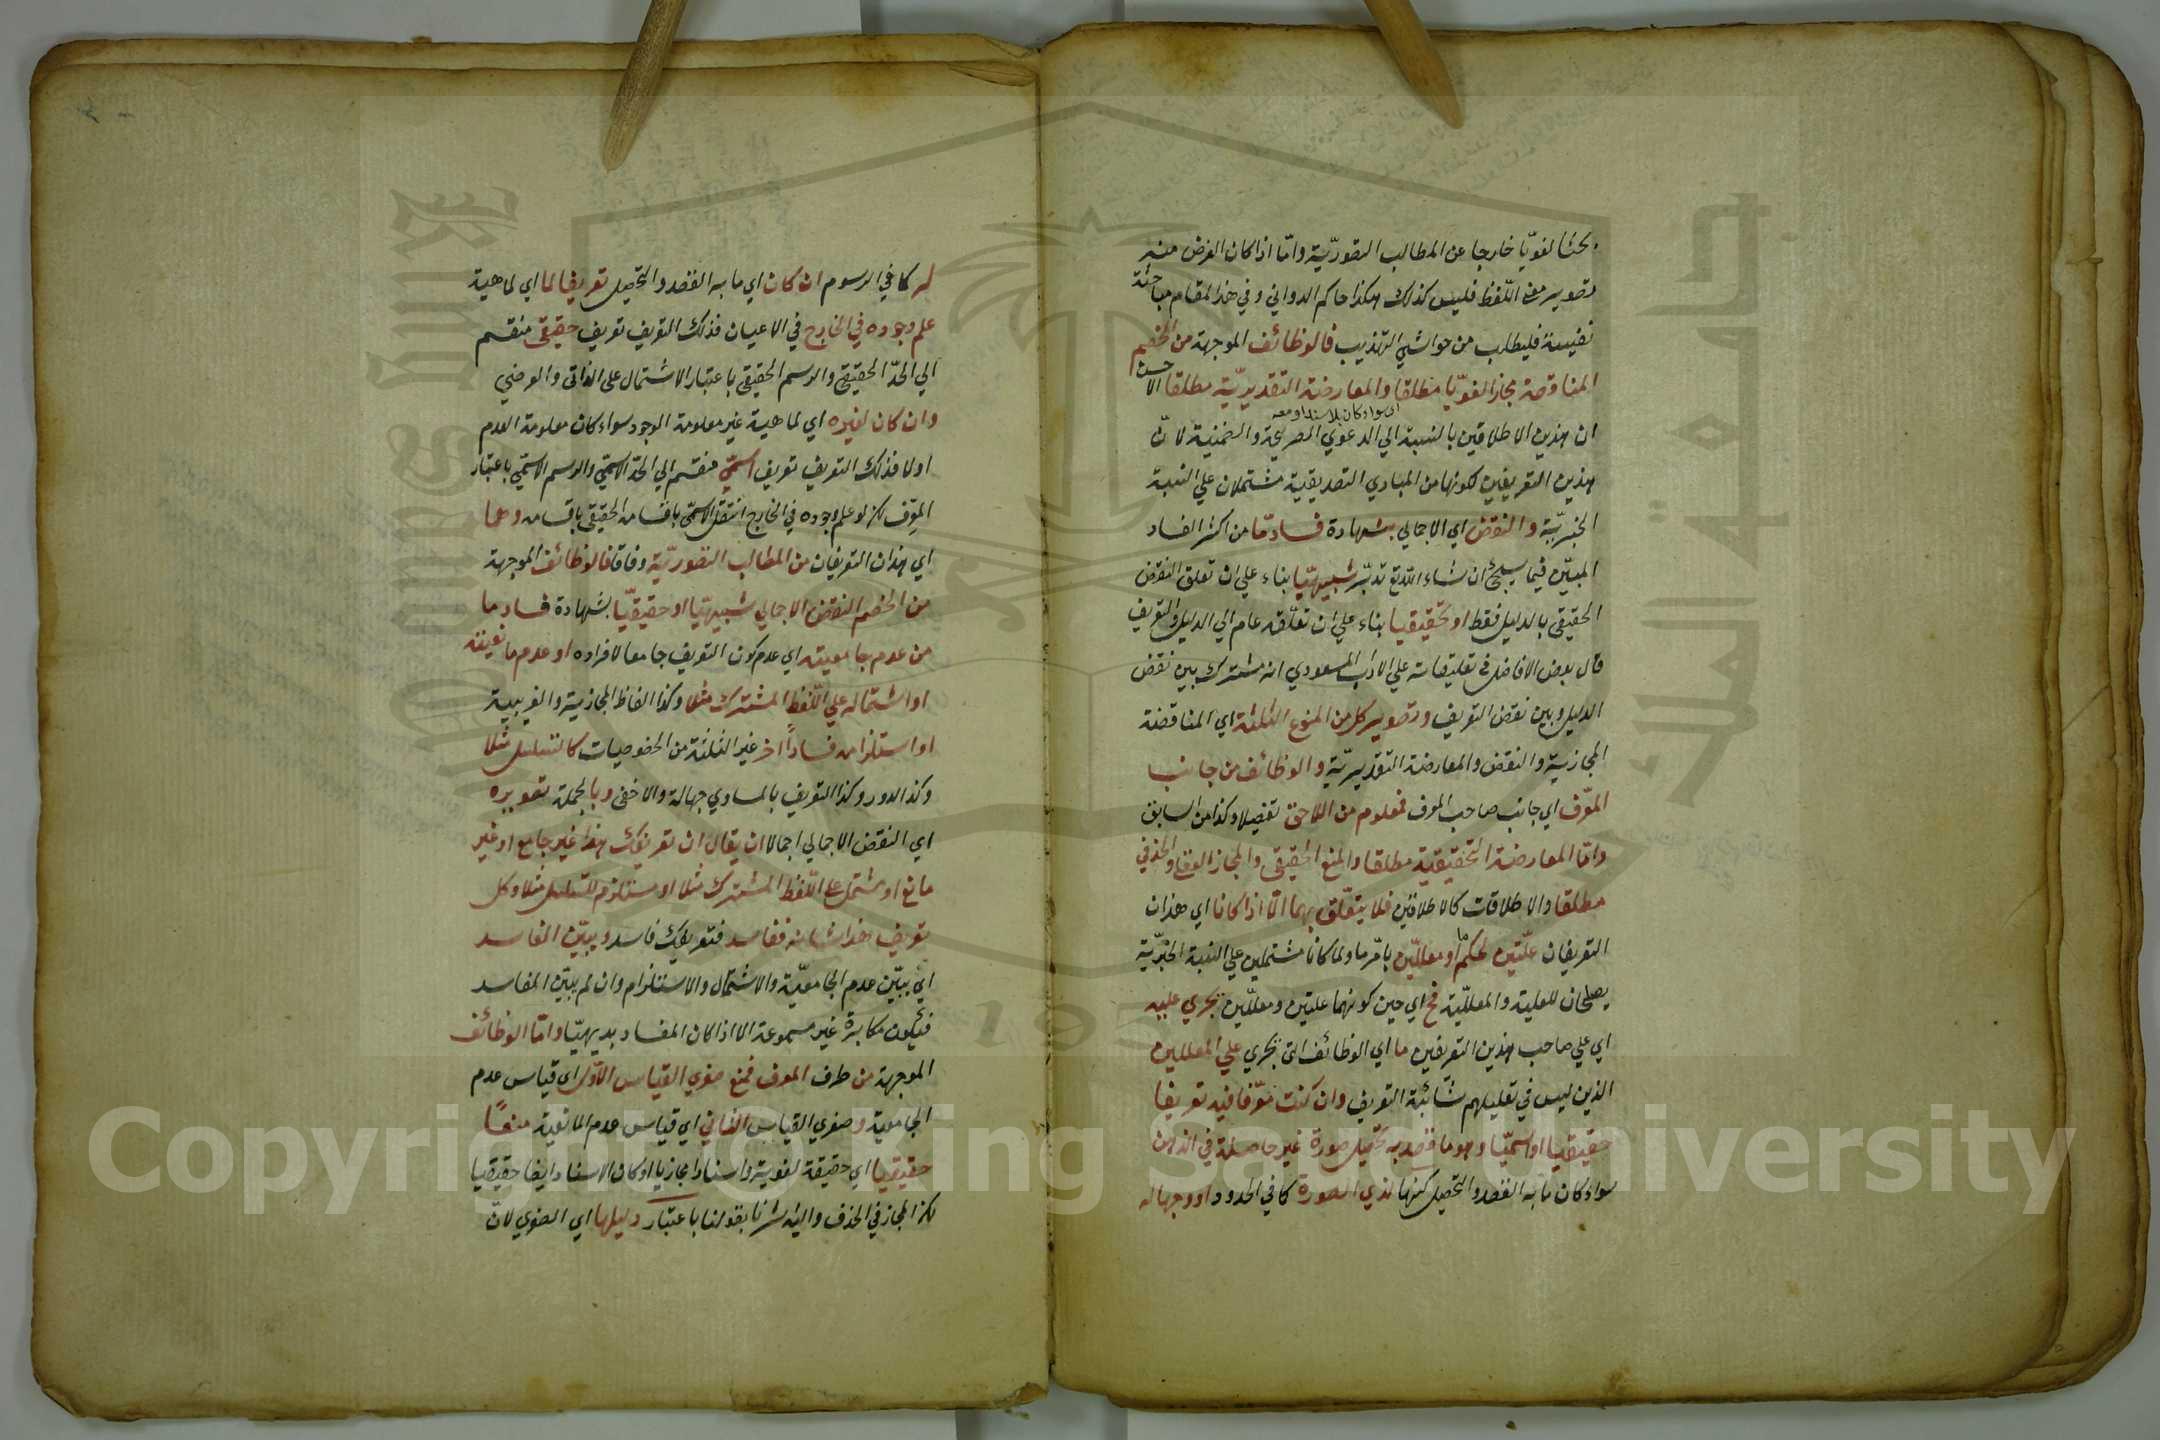 بحثا لغويّا خارجا عن المطالب التصوريّة وامّا اذا كان الغرض منه
تصوير معنى اللّفظ فليس كذلك هكذا حاكم الدواني وفي هذا المقام مباحثة
نفيسة فليطلب من حواشي التهذيب فالوظائف الموجهة من الخصم
المناقضة مجازا لغويّا مطلقا والمعارضة التقديريّة مطلقا الا حسن
اى سواء كان بلا سند او معه
ان هذين الاطلاقين بالنسبة الي الدعوي الصريحة والضمنية لانّ
هذين التعريفين لكونهما من المبادي التصديقية مشتملان علي النسبة
الخبريّة والنقض اي الاجمالي بشهادة فساد مّا من اكثر الفساد
المبيّن فيما سيجئ ان شاء الله تع تدبّر شبيهيّا بناء علي ان تعلق النقض
الحقيقي بالدليل فقط او تحقيقيا بناء علي ان تعلّقه عام الي الدليل والتعريف
قال بعض الافاضل في تعليقاته علي الاداب المسعودي انه مشترك بين نقض
الدليل وبين نقض التعريف وتصوير كل من المنوع الثلثة اي المناقضة
المجازية والنقض والمعارضة التقديريّة والوظائف من جانب
المعّرف اي جانب صاحب المعرف فمعلوم من اللاحق تفصيلا وكذا من السابق
وامّا المعارضة التحقيقية مطلقا والمنع الحقيقي والمجاز العقلي والحذفي
مطلقا والاطلاقات كالاطلاقين فلا يتعلّق بهما الّا اذا كانا اي هذان
التعريفان علّتين لحكم ما او معللّين بامّر ما ولما كانا مشتملين علي النسبة الخبريّة
يصلحان للعلية والمعلليّة فح اي حين كونهما علتين ومعللّين يجري عليه
اي علي صاحب هذين التعريفين ما اي الوظائف التى يجري علي المعللين
الذين ليس في تعليلهم شائبة التعريف وان كنت معّرفا فيه تعريفا
حقيقيا او اسميّا وهو ما قصد به تحصيل صورة غير حاصلة في الذهن
سواء كان ما به القصد والتحصيل كنها لذي الصورة كما في الحدود او وجها له
له كما في الرسوم ان كان اي ما به القصد والتحصيل تعريفا لما اي لماهية
علم وجوده في الخارج في الاعيان فذلك التعريف تعريف حقيقي منقسم
الي الحدّ الحقيقي والرسم الحقيقي باعتبار الاشتمال على الذاتي والعرضي
وان كان لغيره اي لماهية غير معلومة الوجود سواء كان معلومة العدم
او لا فذلك التعريف تعريف اسمّي منقسم الي الحدّ الاسمّي والرسم الاسمّي باعتبار
المعرّف لكن لو علم وجوده في الخارج انتقل الاسمّي باقسامه الحقيقي باقسامه وهما
اي هذان التعريفان من المطالب التصوريّة وفاقا فالوظائف الموجهة
من الخصم النقض الاجمالي شبيهيّا او حقيقيّا بشهادة فساد ما
من عدم جامعيته اي عدم كون التعريف جامعا لافراده او عدم مانعيته
او اشتماله علي اللّفظ المشترك مثلا وكذا الفاظ المجازية والغريبية
او استلزامه فساداً اخر غير الثلثة من الخصوصيات كالتسلسل مثلا
وكذا الدور وكذا التعريف بالمساوي جهالة والاخفى وبالجملة تقويره
اي النقض الاجمالي اجمالا ان يقال ان تعريفك هذا غير جامع او غير
مانع او مشتمل علي اللّفظ المشترك مثلا او مستلزم للتسلسل مثلا وكل
تعريف هذا شانه ففاسد فتعريفك فاسد ويبيّن المفاسد
اي يبيّن عدم الجامعيّة والاشتمال والاستلزام وان لم يبيّن المفاسد
فتكون مكابرة غير مسموعة الا اذا كان الفساد بديهيّا وامّا الوظائف
الموجهة من طرف المعرف فمنع صغري القياس الاوّل اي قياس عدم
الجامعية وصغري القياس الثاني اي قياس عدم المانعية منعاً
حقيقيا اي حقيقة لغوية واسنادا مجازيا او كان الاسناد ايضا حقيقيا
لكن المجاز في الحذف واليه اشرنا بقولنا باعتبار دليلها اي الصغري لانّ